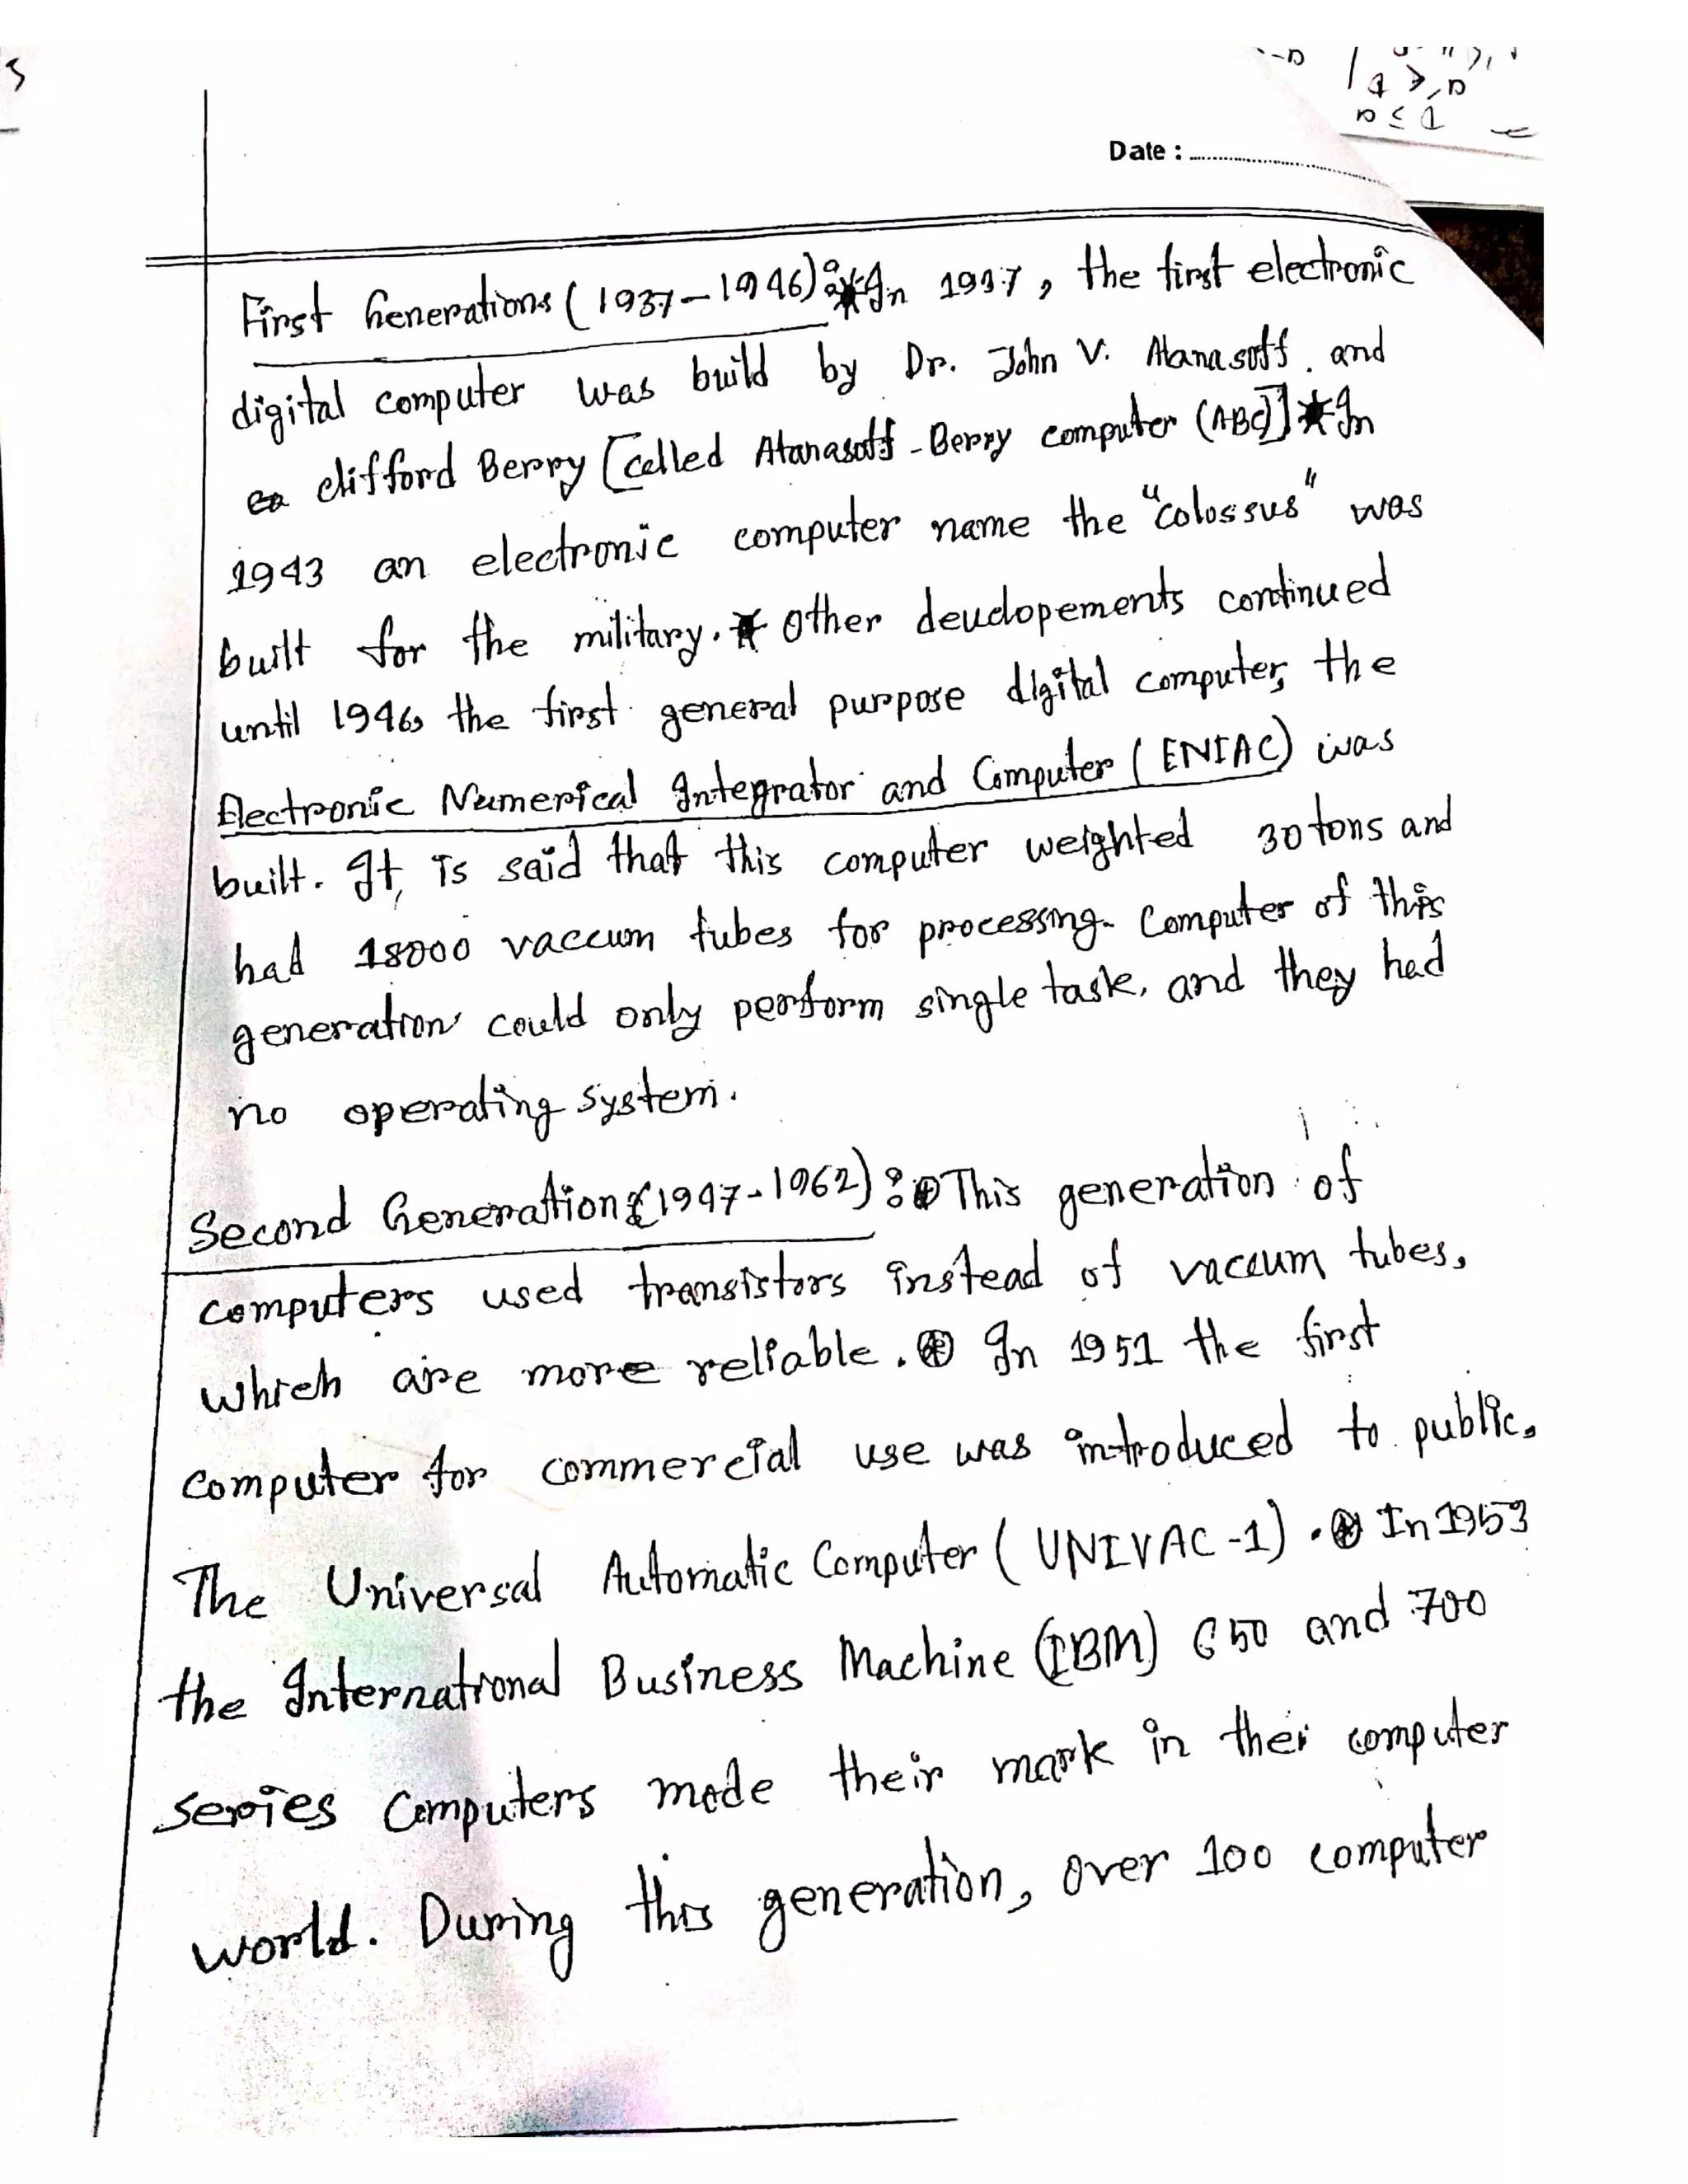 Date :
First Generations (1937-1946): * In 1937, the first electronic
digital computer was build by Dr. John V. Atanasoff. and
clifford Berry [called Atanasoff-Berry computer (ABC)] * In
1943 an electronic computer name the "colossus" was
built for the military. * Other deudopements continued
until 1946, the first general purpose digital computer, the
Electronic Numerical Integrator and Computer (ENIAC) was
built. It is said that this computer weighted 30 tons and
had 18000 vaccum tubes for processing. Computer of this
generation could only perform single task, and they had
no operating system.
Second Generation (1947-1962): ⊛ This generation of
computers used transistors instead of vaccum tubes,
which are more reliable. ⊛ In 1951 the first
computer for commercial use was introduced to public,
The Universal Automatic Computer (UNIVAC-1). ⊛ In 1953
the International Business Machine (IBM) 650 and 700
series Computers made their mark in the computer
world. During this generation, over 100 computer